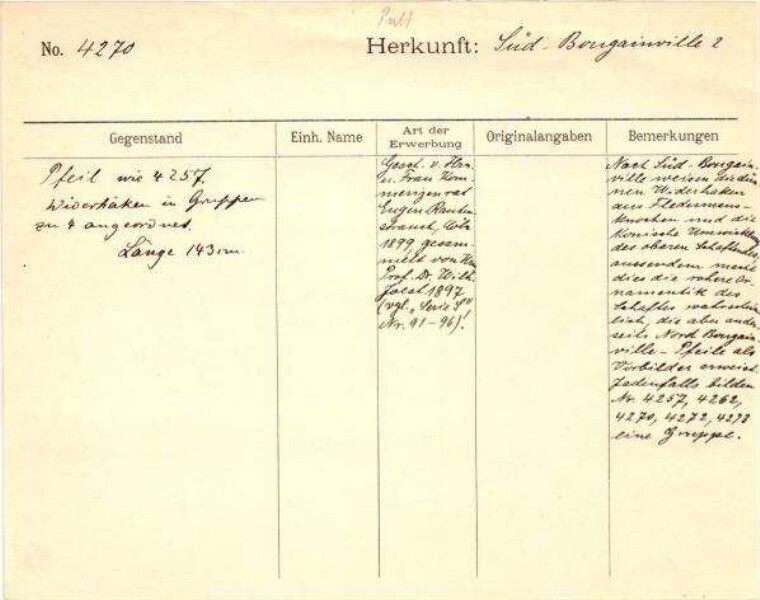 Pult
No. 4270 Herkunft: Süd-Bougainville ?
Gegenstand Einh. Name Art der Erwerbung Originalangaben Bemerkungen
Pfeil wie 4257.
Widerhaken in Gruppen
zu 4 angeordnet.
Länge 143 cm.
Gesch. v. Hrn
u. Frau Kom-
merzienrat
Eugen Rauten-
strauch, Cöln
1899, gesam-
melt von Hrn
Prof. Dr. Wilh.
Joest 1897
(vgl. „Serie S"
Nr. 91-96)!
Nach Süd-Bougain-
ville weisen die dün-
nen Widerhaken
aus Fledermaus-
knochen und die
konische Umwicklung
des oberen Schaftendes,
ausserdem macht
dies die rohere Or-
namentik des
Schaftes wahrschein-
lich, die aber ander-
seits Nord Bougain-
ville-Pfeile als
Vorbilder erweist.
Jedenfalls bilden
Nr. 4257, 4262,
4270, 4272,
eine Gruppe.